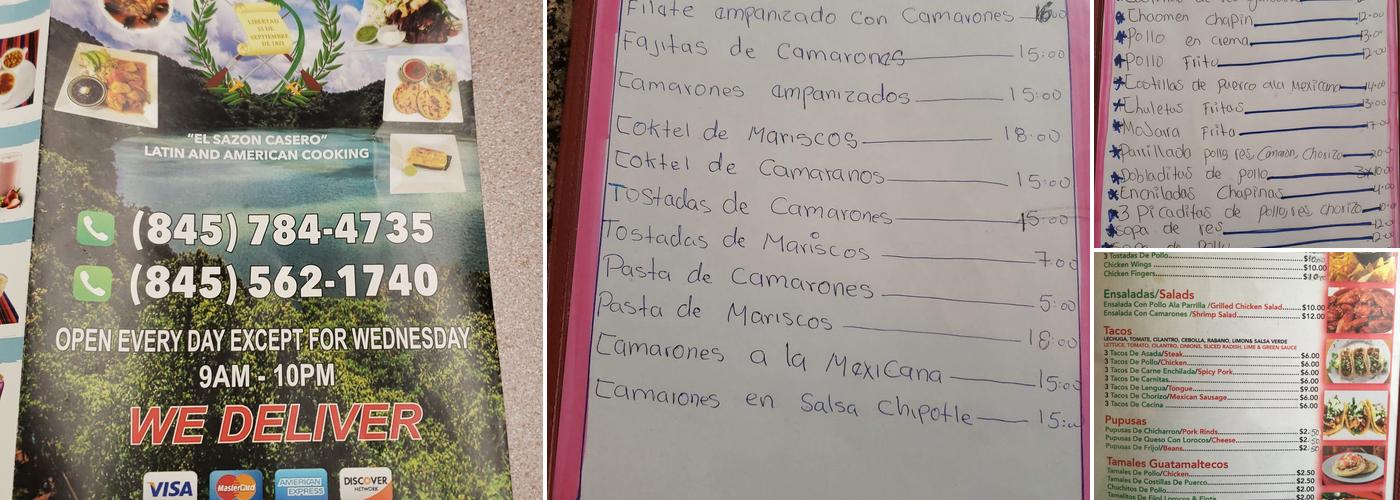 LIBERTAD
15 DE
SEPTIEMBRE
DE 1821
"EL SAZON CASERO"
LATIN AND AMERICAN COOKING
(845) 784-4735
(845) 562-1740
OPEN EVERY DAY EXCEPT FOR WEDNESDAY
9AM - 10PM
WE DELIVER
VISA MasterCard AMERICAN EXPRESS DISCOVER NETWORK
Filate ampanizado con Camarones 16:00
Fajitas de Camarones 15:00
Camarones ampanizados 15:00
Coktel de Mariscos 18:00
Coktel de Camaranos 15:00
Tostadas de Camarones 15:00
Tostadas de Mariscos 7:00
Pasta de Camarones 5:00
Pasta de Mariscos 18:00
Camarones a la Mexicana 15:00
Camarones en Salsa Chipotle 15:
Chaomen chapin 12:00
Pollo en crema 13:00
Pollo Frito 12:00
Costillas de puerco ala Mexicana 14:00
Chuletas Fritas 13:00
Mojara Frita 17:0
Parrillada pollo, res, Camaron, Chorizo
Dobladitas de pollo 3x10:00
Enchiladas Chapinas
3 Picaditas de pollo, res, chorizo
sopa de res
sopa de Pollo
3 Tostadas De Pollo
Chicken Wings $10.00
Chicken Fingers
Ensaladas/Salads
Ensalada Con Pollo Ala Parrilla /Grilled Chicken Salad $10.00
Ensalada Con Camarones /Shrimp Salad $12.00
Tacos
LECHUGA, TOMATE, CILANTRO, CEBOLLA, RABANO, LIMON& SALSA VERDE
LETTUCE, TOMATO, CILANTRO, ONIONS, SLICED RADISH, LIME & GREEN SAUCE
3 Tacos De Asada/Steak $6.00
3 Tacos De Pollo/Chicken $6.00
3 Tacos De Carne Enchilada/Spicy Pork $6.00
3 Tacos De Carnitas $6.00
3 Tacos De Lengua/Tongue $9.00
3 Tacos De Chorizo/Mexican Sausage $6.00
3 Tacos De Cecina $6.00
Pupusas
Pupusas De Chicharron/Pork Rinds $2.50
Pupusas De Queso Con Lorocos/Cheese $2.50
Pupusas De Frijol/Beans $2.50
Tamales Guatamaltecos
Tamales De Pollo/Chicken $2.50
Tamales De Costillas De Puerco $2.50
Chuchitos De Pollo $2.00